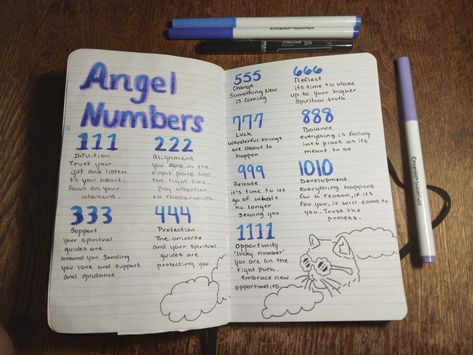 Angel
Numbers
111
Intuition
Trust your
gut and listen
to your heart.
Focus on your
intentions
222
Alignment
You are in the
right place and
the right time.
Pay attention
to relationships.
333
Support
your spiritual
guides are
around you sending
you love and support
and guidance
444
Protection
The universe
and your spiritual
guides are
protecting you
555
Change
Something New
is coming
666
Reflect
its time to wake
up to your higher
Spiritual truth.
777
Luck
wonderful things
are about to
happen
888
Balance
everything is falling
into place as its
meant to be
999
Release
it's time to let
go of what's
no longer
serving you
1010
Development
everything happens
for a reason, if its
for you, it will come to
you. Trust the
process.
1111
Opportunity
'lucky number'
you are on the
right path..
embrace new
opportunities
Crayola
Crayola